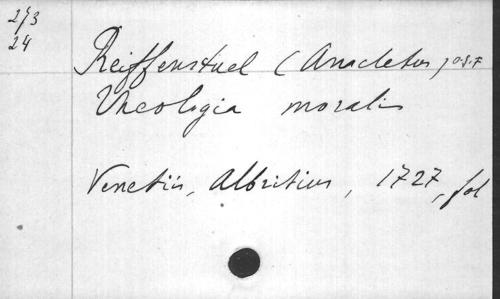 273
24
Reiffenstuel (Anacletus, O.S.F
Theologia moralis
Venetiis, Albritius, 1727, fol